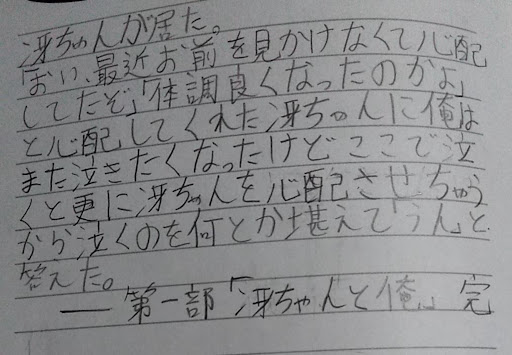 冴ちゃんが居た。
「おい、最近お前を見かけなくて心配
してたぞ」「体調良くなったのかよ」
と心配してくれた冴ちゃんに俺は
また泣きたくなったけどここで泣
くと更に冴ちゃんを心配させちゃう
から泣くのを何とか堪えて「うん」と
答えた。
── 第一部「冴ちゃんと俺。」 完